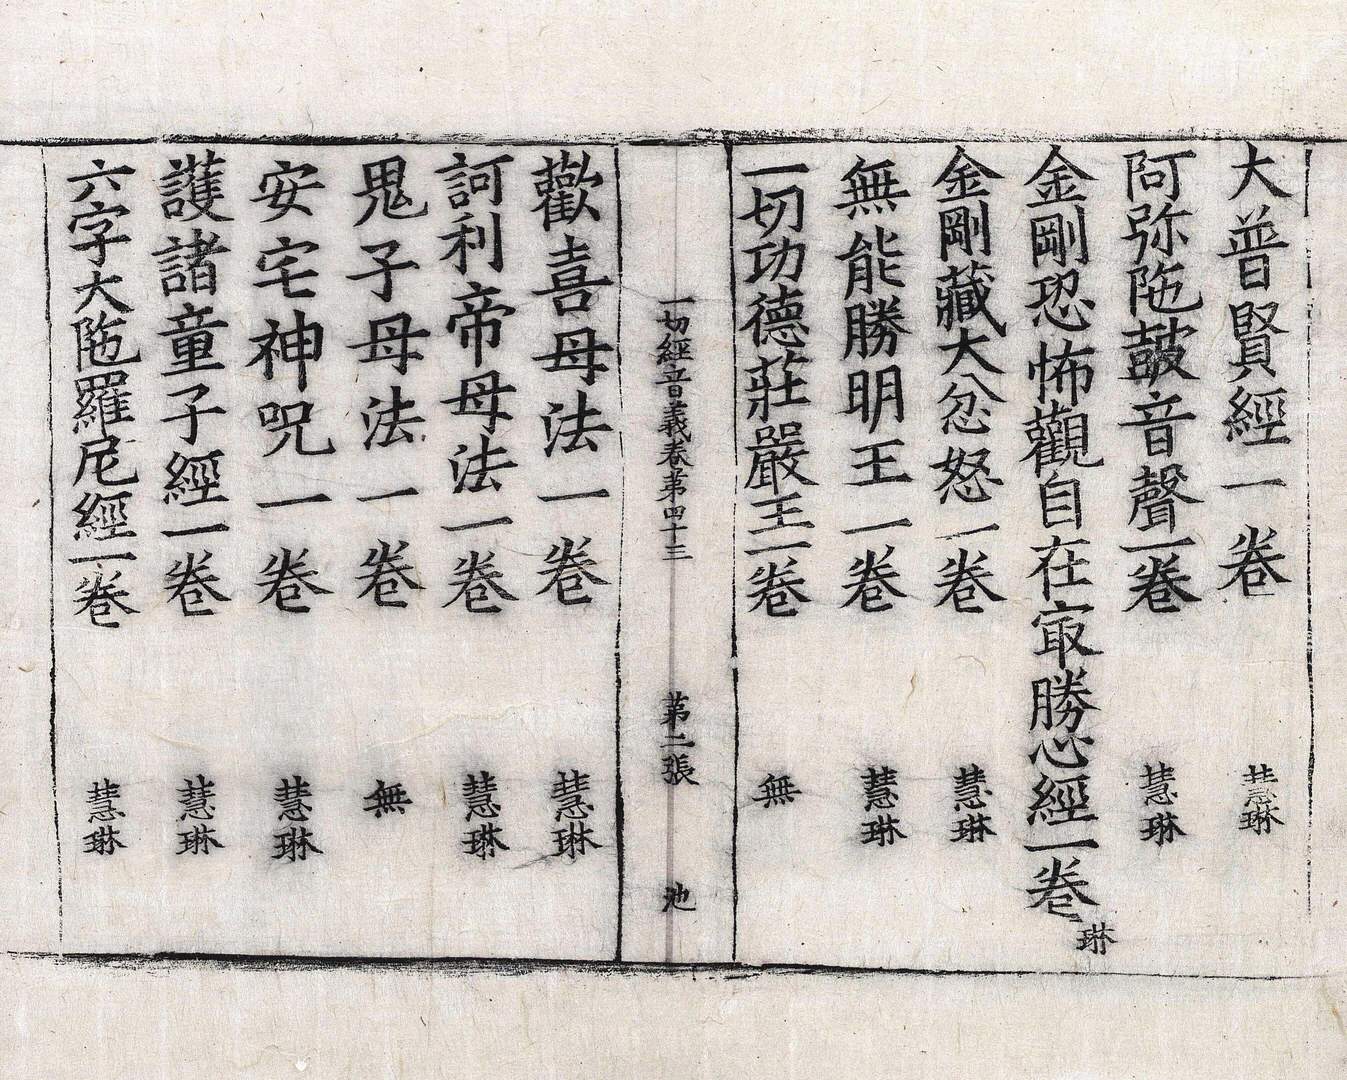 大普賢經一卷 慧琳
阿弥陁鼓音聲一卷 慧琳
金剛恐怖觀自在㝡勝心經一卷 琳
金剛藏大忿怒一卷 慧琳
無能勝明王一卷 慧琳
一切功德莊嚴王一卷 無
一切經音義卷第四十三 第二張 池
歡喜母法一卷 慧琳
訶利帝母法一卷 慧琳
鬼子母法一卷 無
安宅神呪一卷 慧琳
護諸童子經一卷 慧琳
六字大陁羅尼經一卷 慧琳